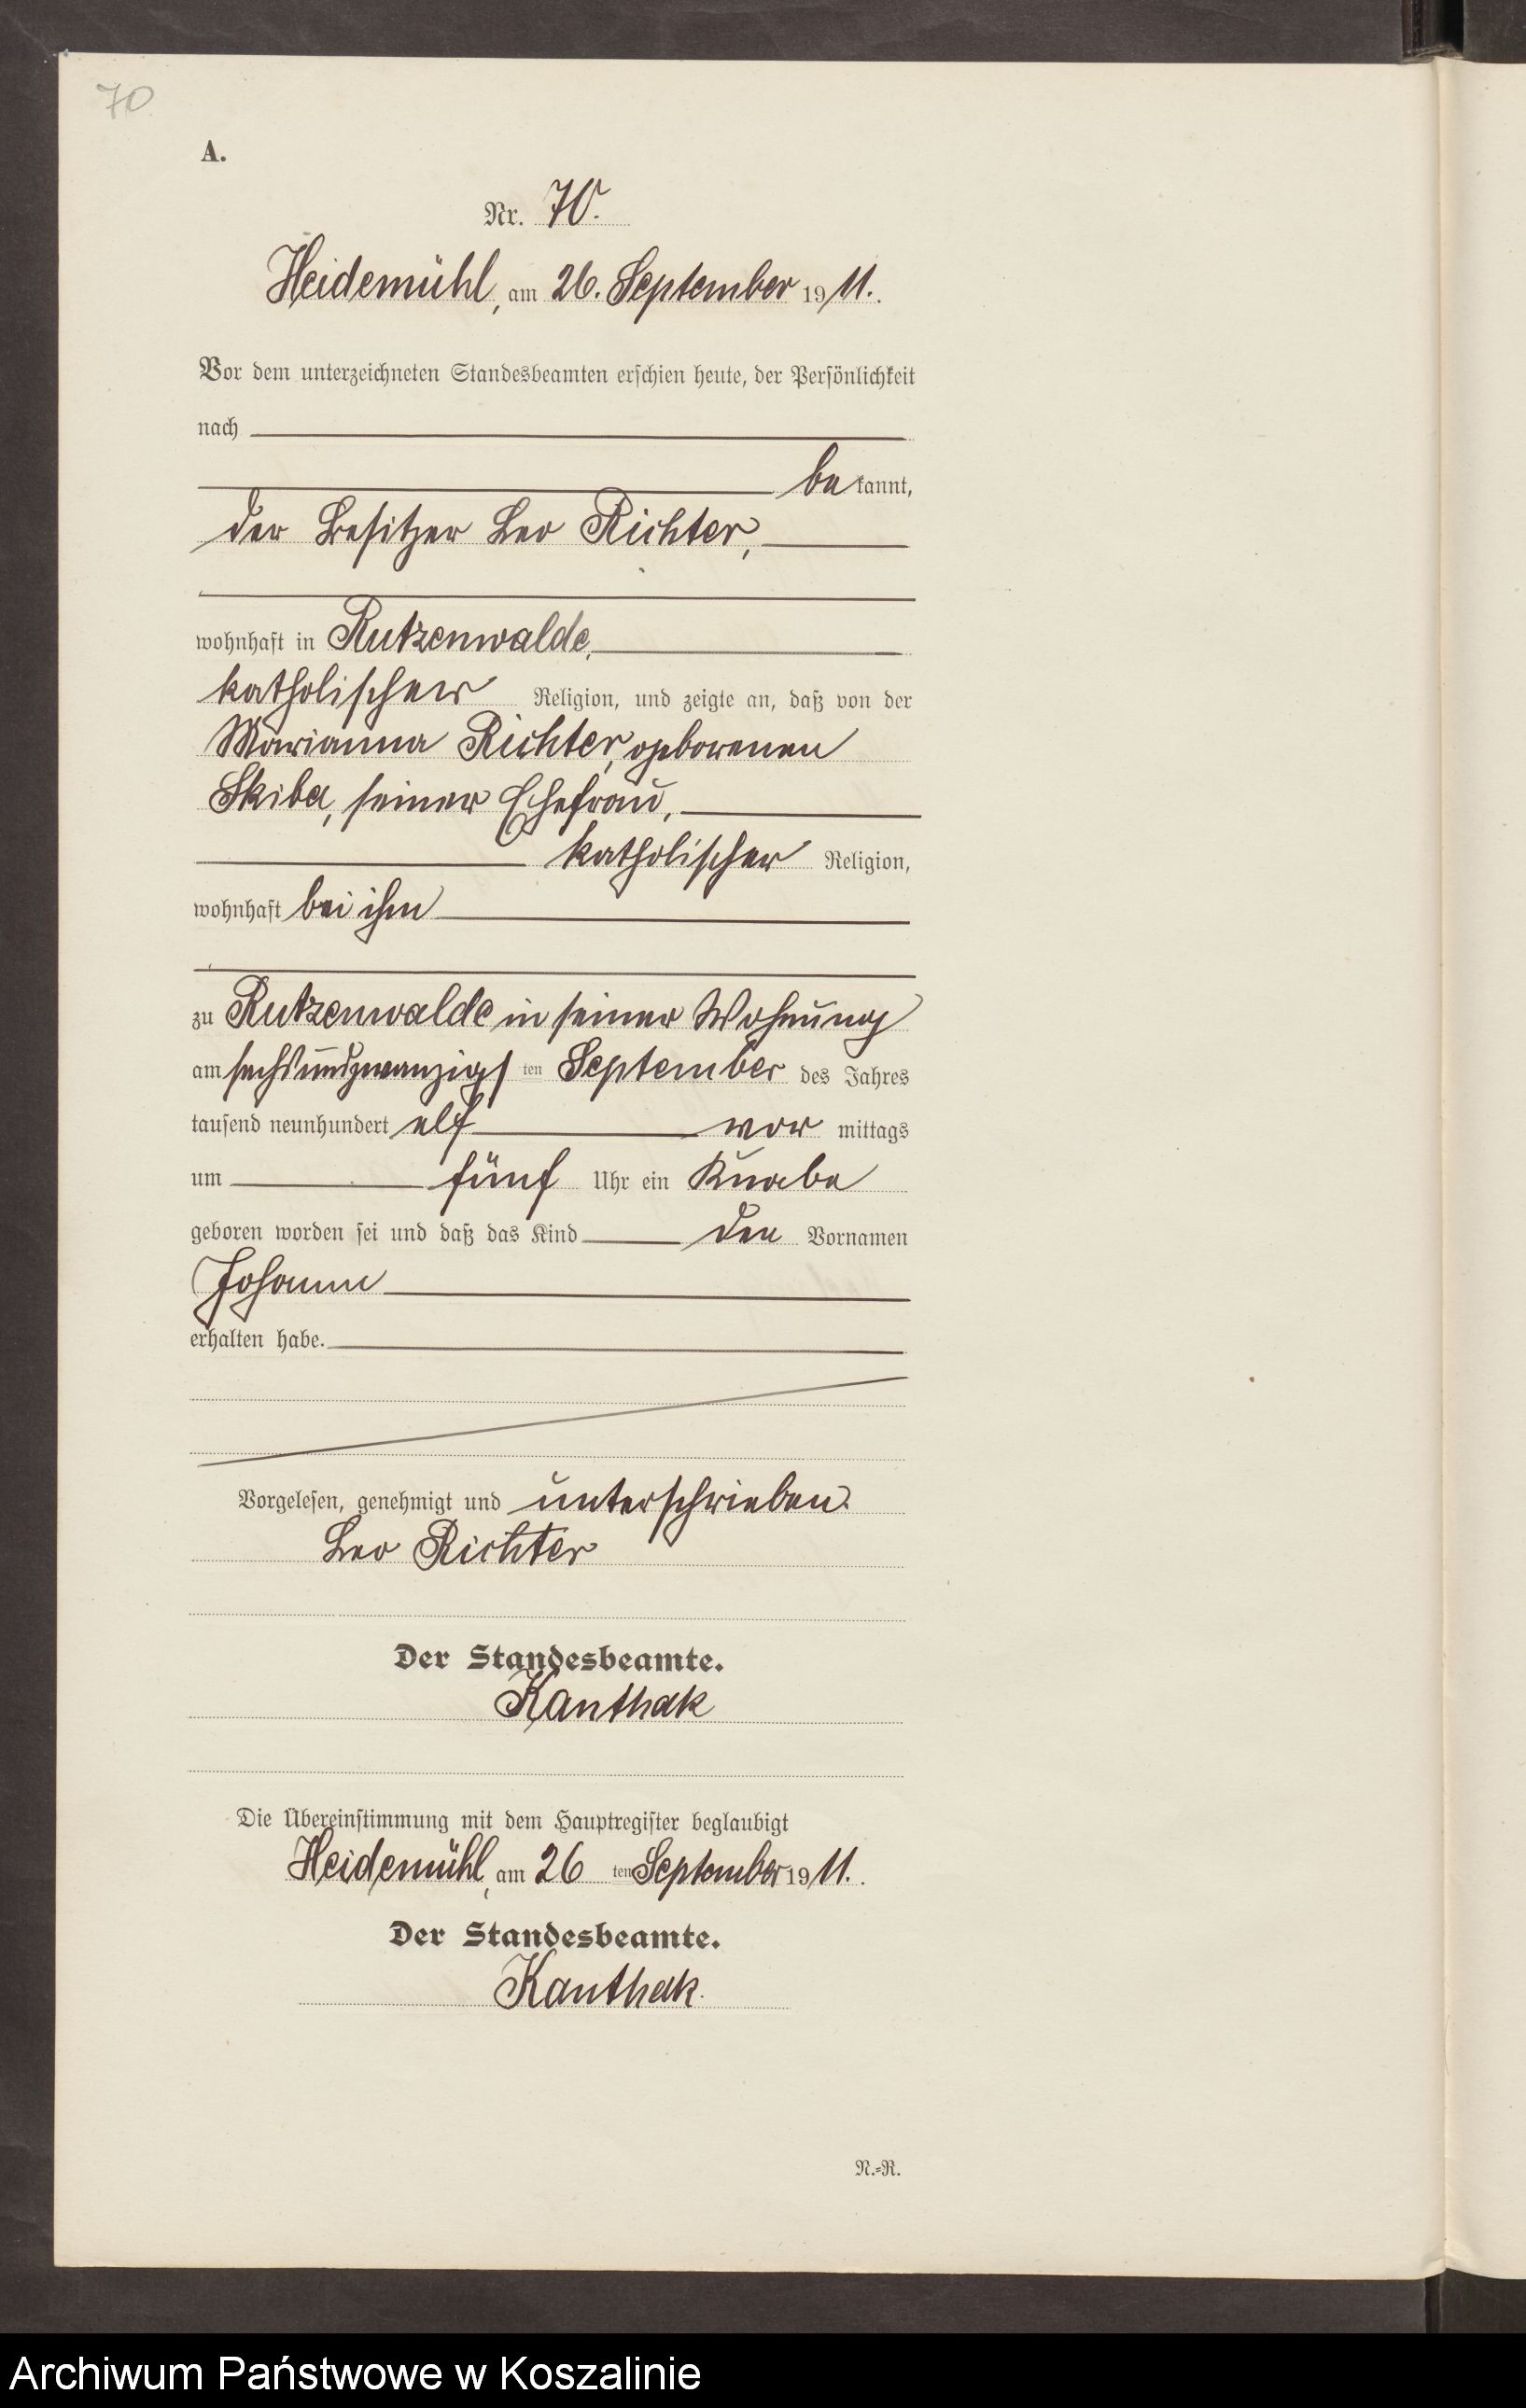 70
A.
Nr. 70.
Heidemühl, am 26. September 1911.
Vor dem unterzeichneten Standesbeamten erschien heute, der Persönlichkeit
nach
bekannt,
der Besitzer Leo Richter,
wohnhaft in Rutzenwalde,
katholischer Religion, und zeigte an, daß von der
Marianna Richter, geborenen
Skiba, seiner Ehefrau,
katholischer Religion,
wohnhaft bei ihm
zu Rutzenwalde in seiner Wohnung
am sechsundzwanzigsten September des Jahres
tausend neunhundert elf vormittags
um fünf Uhr ein Knabe
geboren worden sei und daß das Kind den Vornamen
Johann
erhalten habe.
Vorgelesen, genehmigt und unterschrieben.
Leo Richter
Der Standesbeamte.
Kanthak
Die Übereinstimmung mit dem Hauptregister beglaubigt
Heidemühl, am 26ten September 1911.
Der Standesbeamte.
Kanthak.
N.=R.
Archiwum Państwowe w Koszalinie